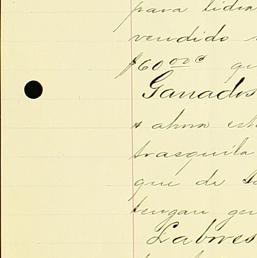 para lidia
vendido
$60.00
Ganados
s ahora est
trasquila
que de
tengan gen
Labores